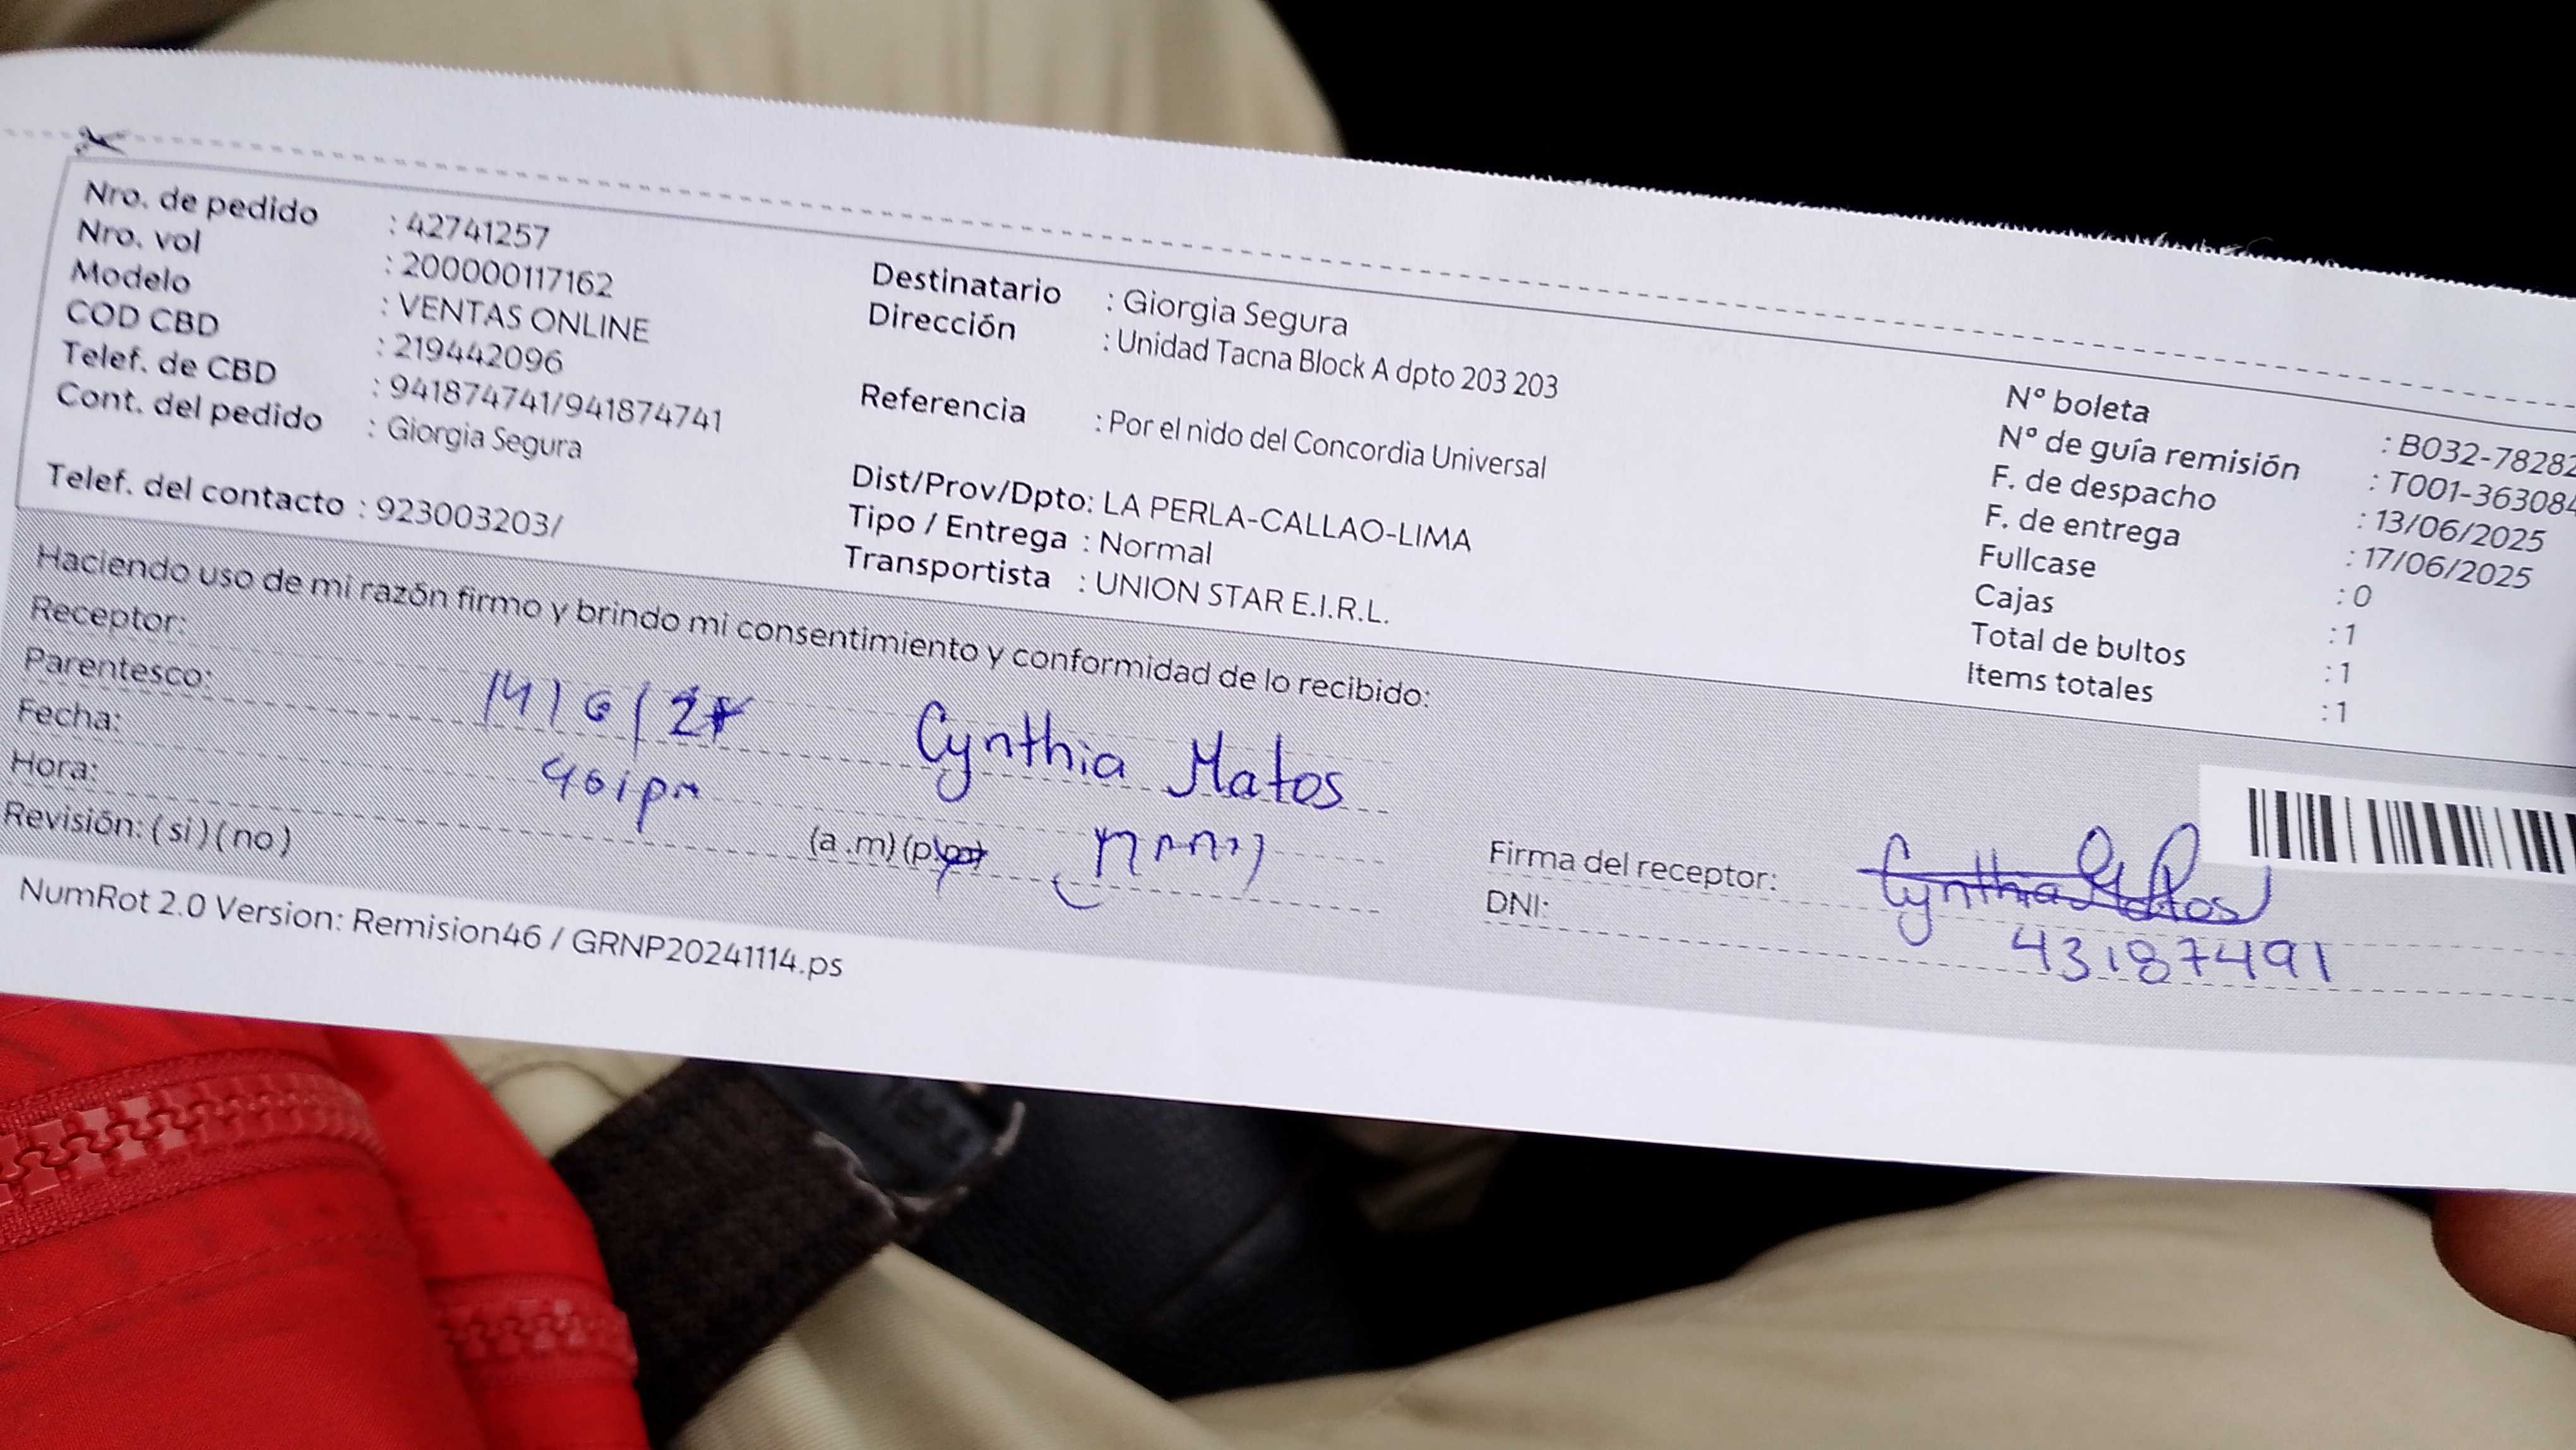 Nro. de pedido : 42741257
Nro. vol : 200000117162
Modelo : VENTAS ONLINE
COD CBD : 219442096
Telef. de CBD : 941874741/941874741
Cont. del pedido : Giorgia Segura
Telef. del contacto : 923003203/
Destinatario : Giorgia Segura
Dirección : Unidad Tacna Block A dpto 203 203
Referencia : Por el nido del Concordia Universal
Dist/Prov/Dpto: LA PERLA-CALLAO-LIMA
Tipo / Entrega : Normal
Transportista : UNION STAR E.I.R.L.
N° boleta : B032-78282
N° de guía remisión : T001-363084
F. de despacho : 13/06/2025
F. de entrega : 17/06/2025
Fullcase : 0
Cajas : 1
Total de bultos : 1
Items totales : 1
Haciendo uso de mi razón firmo y brindo mi consentimiento y conformidad de lo recibido:
Receptor: Cynthia Matos
Parentesco:
Fecha:
Hora: (a .m) (p.m)
Revisión: ( si ) ( no )
Firma del receptor: Cynthia Matos
DNI: 43187491
NumRot 2.0 Version: Remision46 / GRNP20241114.ps